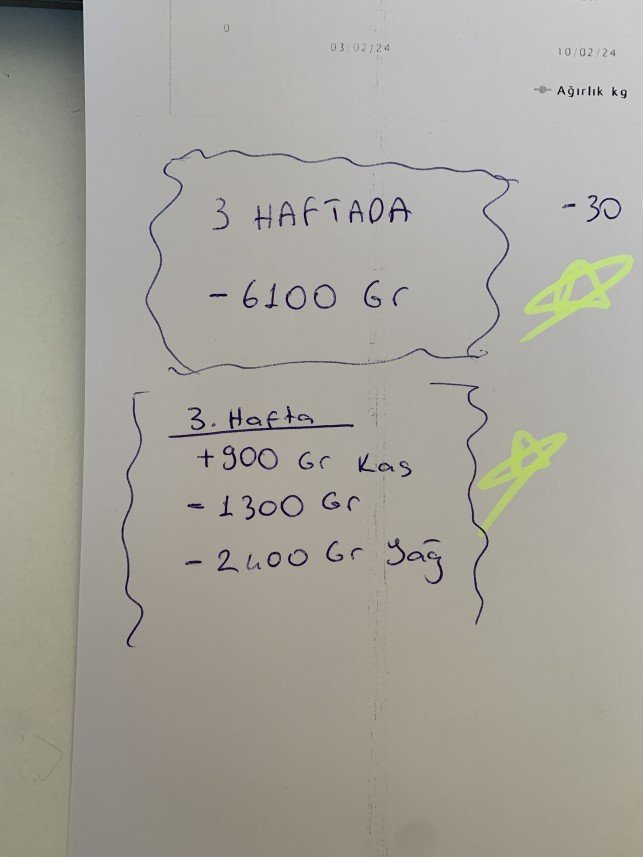 0
03/02/24
10/02/24
Ağırlık kg
3 HAFTADA
- 6100 Gr
- 30
3. Hafta
+900 Gr Kas
- 1300 Gr
- 2400 Gr Yağ